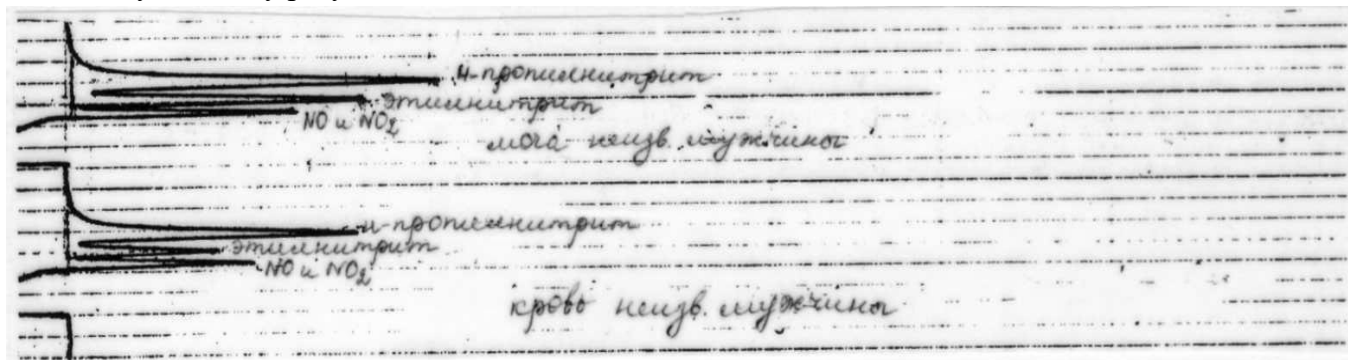 н-пропилнитрит
этилнитрит
NO и NO2
моча неизв. мужчины
н-пропилнитрит
этилнитрит
NO и NO2
кровь неизв. мужчины